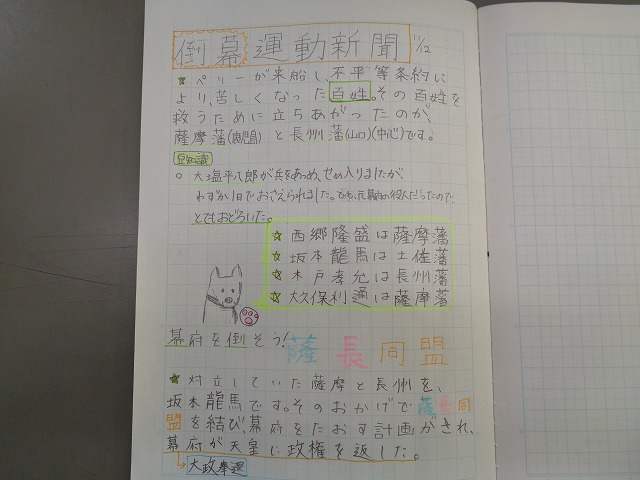 倒幕運動新聞 11/12
★ペリーが来船し、不平等条約に
より、苦しくなった百姓。その百姓を
救うために立ちあがったのが、
薩摩藩(鹿児島)と長州藩(山口)(中心)です。
豆知識
○大塩平八郎が兵をあつめ、せめ入りましたが、
わずか1日でおさえられました。でも、元幕府の役人だったので
とてもおどろいた。
☆西郷隆盛は薩摩藩
☆坂本龍馬は土佐藩
☆木戸孝允は長州藩
☆大久保利通は薩摩藩
幕府を倒そう!
薩長同盟
★対立していた薩摩と長州を、
坂本龍馬です。そのおかげで薩長同
盟を結び、幕府をたおす計画がされ、
幕府が天皇に政権を返した。
→大政奉還